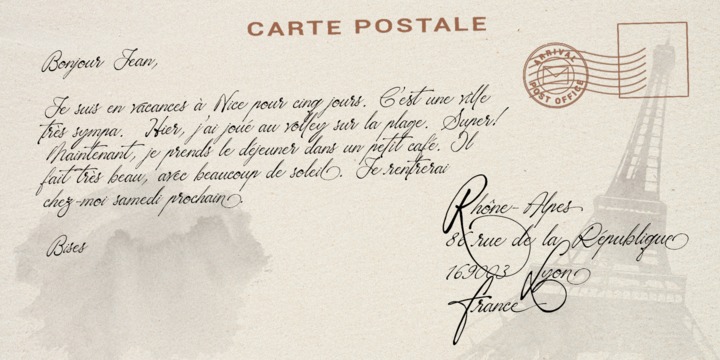 CARTE POSTALE
ARRIVAL
POST OFFICE
Bonjour Jean,
Je suis en vacances à Nice pour cinq jours. C'est une ville
très sympa. Hier, j'ai joué au volley sur la plage. Super!
Maintenant, je prends le déjeuner dans un petit café. Il
fait très beau, avec beaucoup de soleil. Je rentrerai
chez-moi samedi prochain.
Bises
Rhône-Alpes
rue de la République
169003 Lyon
France